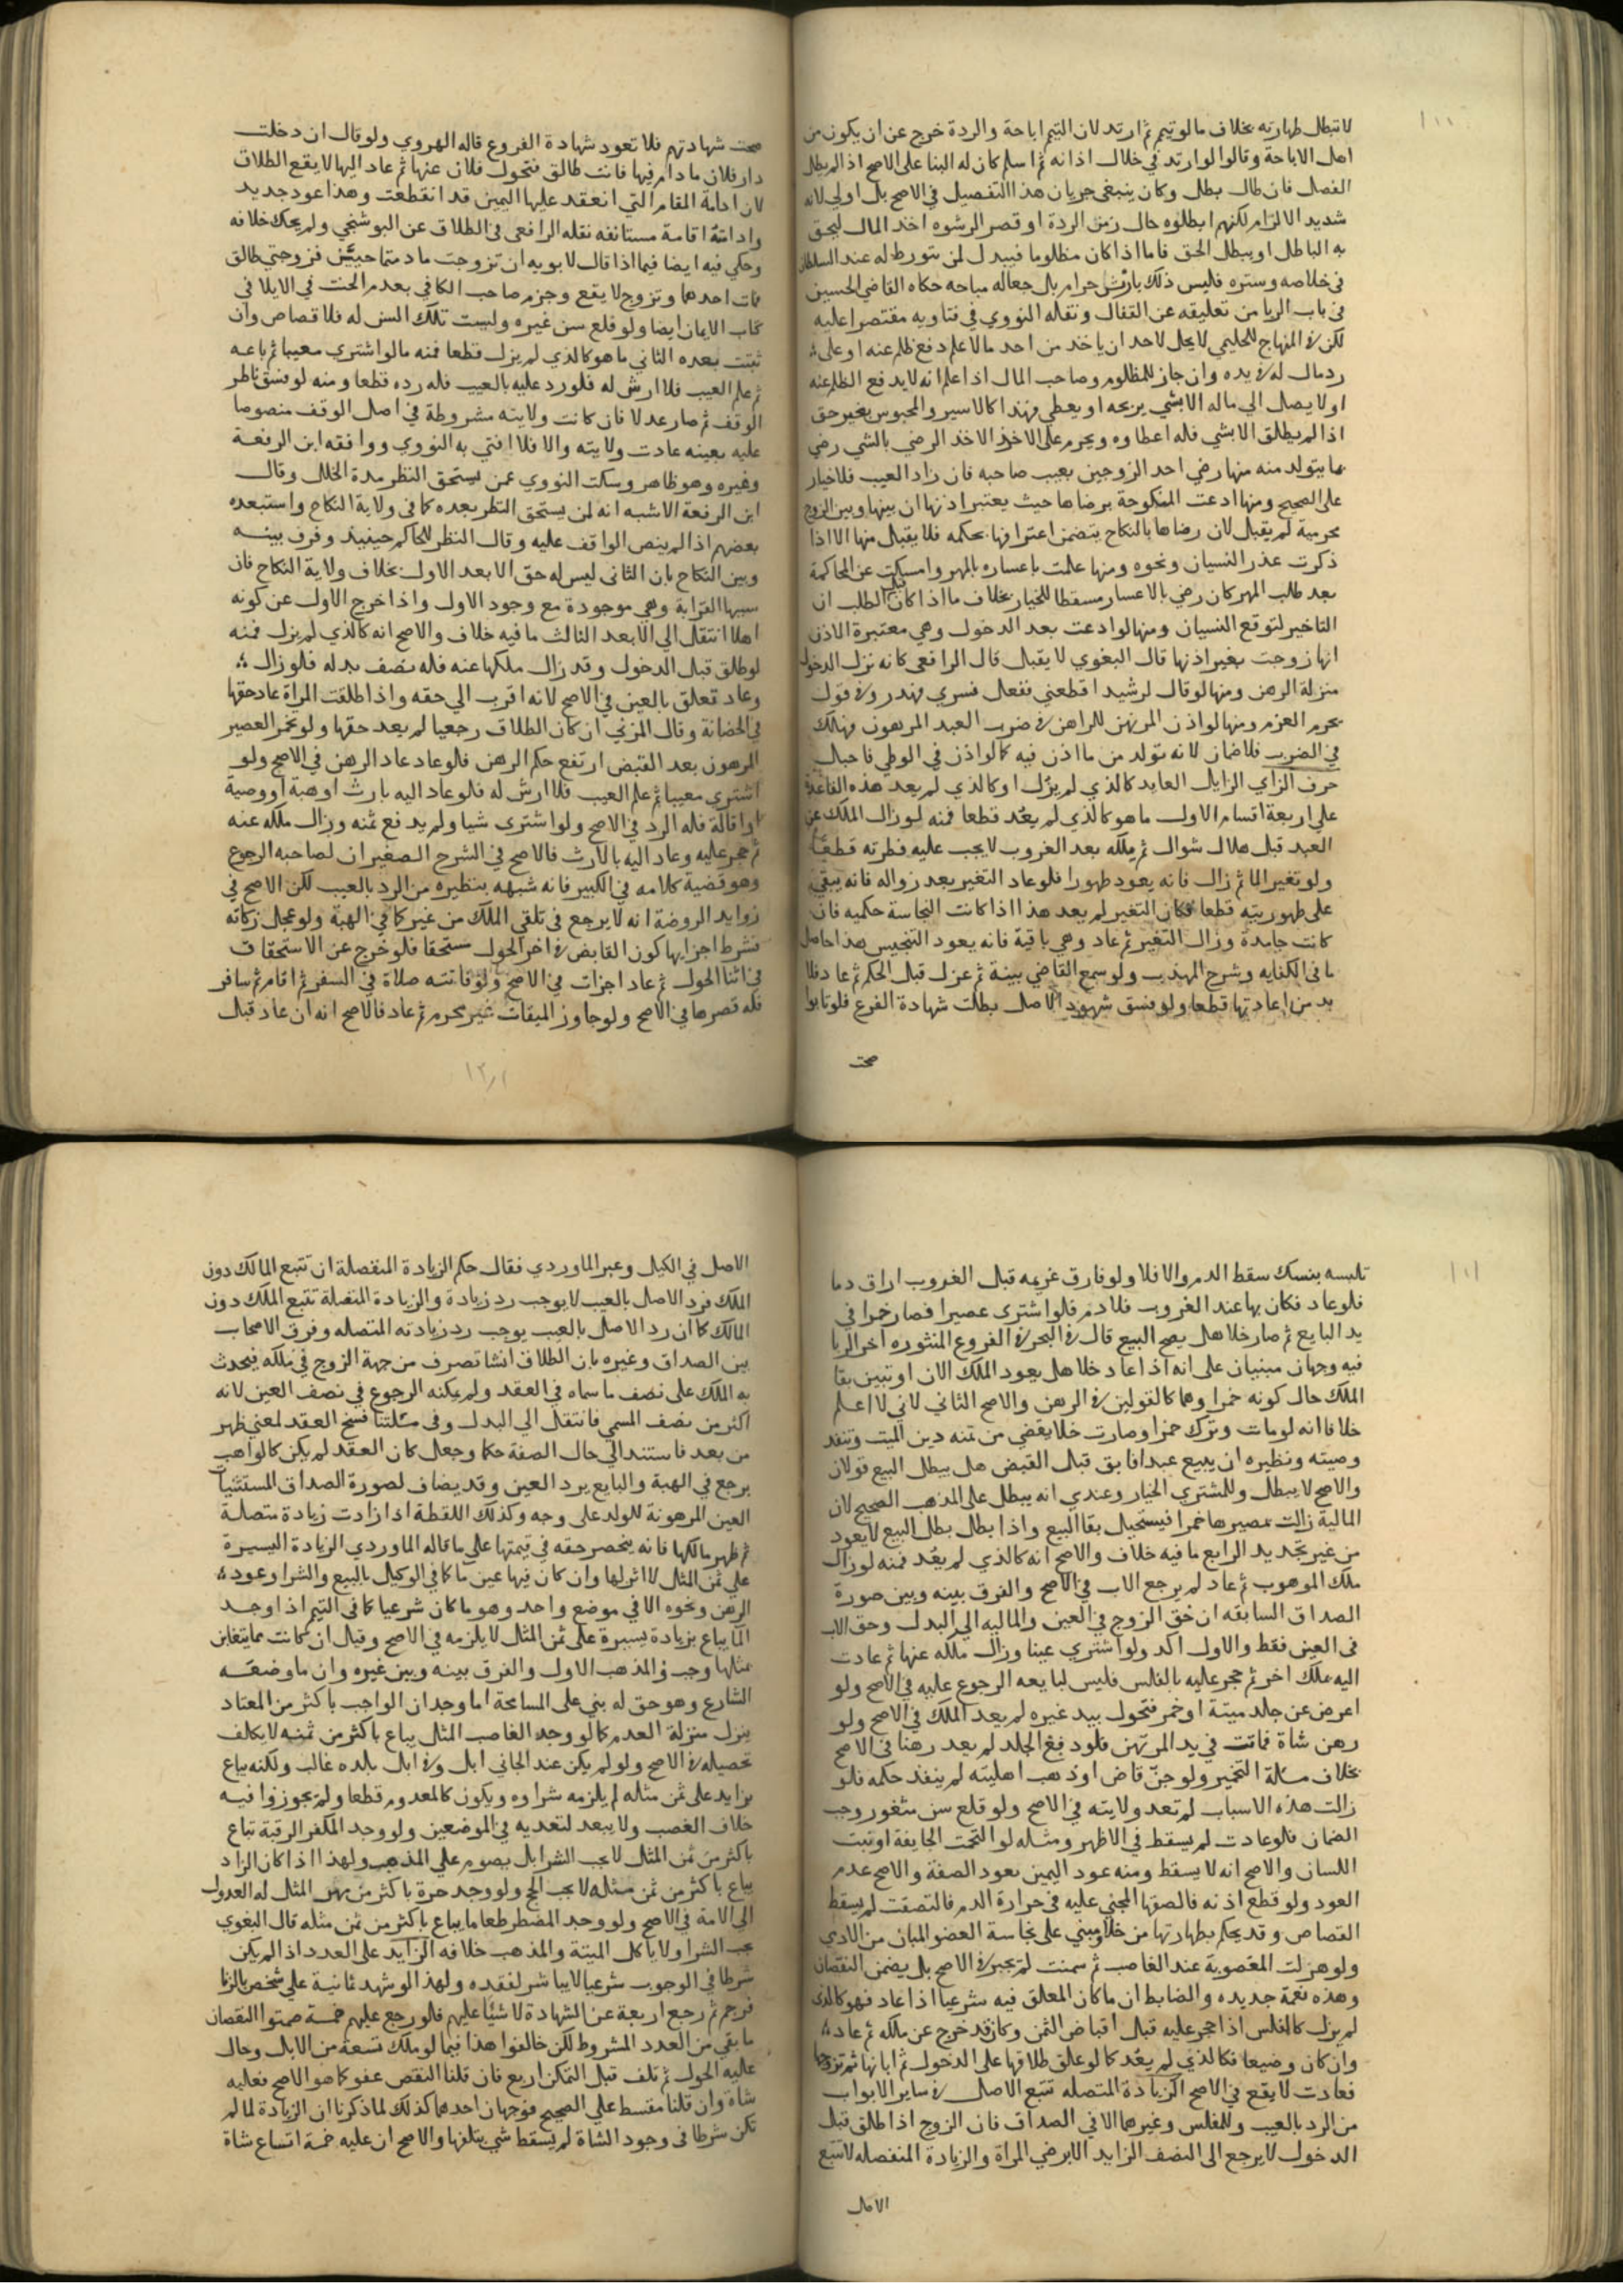 ١٠٠
لا تبطل طهارته بخلاف ما لو تيمم ثم ارتد لان التيمم اباحة والردة خرج عن ان يكون من
اهل الاباحة وقالوا لو ارتد في خلال اذانه ثم اسلم كان له البنا على الاصح اذا لم يطل
الفصل فان طال بطل وكان ينبغي جريان هذا التفصيل في الاصح بل اولى لانه
شديد الالزام لكنهم ابطلوه حال زمن الردة او قصر الرشوه اخد المال ليحق
به الباطل او يبطل الحق فاما اذا كان مظلوما فيبدل لمن يتورط له عند السلطان
في خلاصه وستره فليس ذلك بارش حرام بل جعاله مباحه حكاه القاضي الحسين
في باب الربا من تعليقه عن القفال ونقله النووي في فتاويه مقتصرا عليه
لكن في المنهاج للحليمي لا يحل لاحد ان ياخد من احد مالا علم دفع ظلم عنه او على
رد مال له في يده وان جاز للمظلوم وصاحب المال اذا علم انه لا يدفع الظلم عنه
او لا يصل الي ماله الا بشي يربحه او يعطي وهذا كالاسير والمحبوس بغير حق
اذا لم يطلق الا بشي فله اعطاوه ويحرم على الاخذ الاخد الرضي بالشي رضي
بما يتولد منه منها رضي احد الزوجين بعيب صاحبه فان زاد العيب فلا خيار
على الصحيح ومنها ادعت المنكوحة برضاها حيث يعتبر اذنها ان بينها وبين الزوج
محرمية لم يقبل لان رضاها بالنكاح يتضمن اعترافها بحكمه فلا يقبل منها الا اذا
ذكرت عذر النسيان ونحوه ومنها علمت باعساره بالمهر وامسكت عن المحاكمة
بعد طلب المهر كان رضي بالاعسار مسقطا للخيار بخلاف ما اذا كان قبل الطلب ان
التاخير لتوقع النسيان ومنها لو ادعت بعد الدخول وهي معتبرة الاذن
انها زوجت بغير اذنها قال البغوي لا يقبل قال الرافعي كانه نزل الدخول
منزلة الرهن ومنها لو قال لرشيد اقطعني ففعل فسري فهدر وفي قول
يحرم العزم ومنها لو اذن المرتهن للراهن في ضرب العبد المرهون فهلك
في الضرب فلا ضمان لانه تولد من ما اذن فيه كما لو اذن في الوطي فاحبل
حرف الزاي الزايل العايد كالذي لم يزل او كالذي لم يعد هذه القاعدة
على اربعة اقسام الاول ما هو كالذي لم يعد قطعا فمنه لو زال الملك عن
العبد قبل هلال شوال ثم ملكه بعد الغروب لا يجب عليه فطرته قطعا
ولو تغير الما ثم زال فانه يعود طهورا فلو عاد التغير بعد زواله فانه يبقى
على طهوريته قطعا فكان التغير لم يعد هذا اذا كانت النجاسة حكميه فان
كانت جامدة وزال التغير ثم عاد وهي باقية فانه يعود التنجيس هذا حاصل
ما في الكفايه وشرح المهذب ولو سمع القاضي بينة ثم عزل قبل الحكم ثم عاد فلا
بد من اعادتها قطعا ولو فسق شهود الاصل بطلت شهادة الفرع فلو تابوا
صحت
صحت شهادتهم فلا تعود شهادة الفروع قاله الهروي ولو قال ان دخلت
دار فلان مادام فيها فانت طالق فتحول فلان عنها ثم عاد اليها لا يقع الطلاق
لان ادامة المقام التي انعقد عليها اليمين قد انقطعت وهذا عود جديد
وادامة اقامة مستانفه نقله الرافعي في الطلاق عن البوشنجي ولم يحك خلافه
وحكي فيه ايضا فيما اذا قال لابويه ان تزوجت ما دمتما حيين فزوجتي طالق
فمات احدهما وتزوج لا يقع وجزم صاحب الكافي بعدم الحنث في الايلا في
كتاب الايمان ايضا ولو قلع سن غيره وليست تلك السن له فلا قصاص وان
ثبتت بعده الثاني ما هو كالذي لم يزل قطعا فمنه ما لو اشترى معيبا ثم باعه
ثم علم العيب فلا ارش له فلو رد عليه بالعيب فله رده قطعا ومنه لو فسق ناظر
الوقف ثم صار عدلا فان كانت ولايته مشروطة في اصل الوقف منصوصا
عليه بعينه عادت ولايته والا فلا افتى به النووي ووافقه ابن الرفعة
وغيره وهو ظاهر وسكت النووي عمن يستحق النظر مدة الخلل وقال
ابن الرفعة الاشبه انه لمن يستحق النظر بعده كما في ولاية النكاح واستبعده
بعضهم اذا لم ينص الواقف عليه وقال النظر للحاكم حينئذ وفرق بينه
وبين النكاح بان الثاني ليس له حق الا بعد الاول بخلاف ولاية النكاح فان
سببها القرابة وهي موجودة مع وجود الاول واذا خرج الاول عن كونه
اهلا انتقل الي الابعد الثالث ما فيه خلاف والاصح انه كالذي لم يزل فمنه
لو طلق قبل الدخول وقد زال ملكها عنه فله نصف بدله فلو زال
وعاد تعلق بالعين في الاصح لانه اقرب الي حقه واذا طلقت المراة عاد حقها
في الحضانة وقال المزني ان كان الطلاق رجعيا لم يعد حقها ولو تخمر العصير
المرهون بعد القبض ارتفع حكم الرهن فلو عاد عاد الرهن في الاصح ولو
اشتري معيبا ثم علم العيب فلا ارش له فلو عاد اليه بارث او هبة او وصية
او اقالة فله الرد في الاصح ولو اشترى شيا ولم يدفع ثمنه وزال ملكه عنه
ثم حجر عليه وعاد اليه بالارث فالاصح في الشرح الصغير ان لصاحبه الرجوع
وهو قضية كلامه في الكبير فانه شبهه بنظيره من الرد بالعيب لكن الاصح في
زوايد الروضة انه لا يرجع في تلقي الملك من غير كما في الهبة ولو عجل زكاته
فشرط اجزايها كون القابض في اخر الحول مستحقا فلو خرج عن الاستحقاق
في اثنا الحول ثم عاد اجزات في الاصح ولو فاتته صلاة في السفر ثم اقام ثم سافر
فله قصرها في الاصح ولو جاوز الميقات غير محرم ثم عاد فالاصح انه ان عاد قبل
١٠١
تلبسه بنسك سقط الدم والا فلا ولو فارق غريمه قبل الغروب اراق دما
فلو عاد فكان بها عند الغروب فلا دم فلو اشترى عصيرا فصار خمرا في
يد البايع ثم صار خلا هل يصح البيع قال في البحر في الفروع المنثوره اخر الربا
فيه وجهان مبنيان على انه اذا عاد خلا هل يعود الملك الان او تبين بقا
الملك حال كونه خمرا وهما كالقولين في الرهن والاصح الثاني لاني لا اعلم
خلافا انه لو مات وترك خمرا وصارت خلا يقضي من ثمنه دين الميت وتنفد
وصيته ونظيره ان يبيع عبدا فابق قبل القبض هل يبطل البيع قولان
والاصح لا يبطل وللمشتري الخيار وعندي انه يبطل على المذهب الصحيح لان
المالية زالت بمصيرها خمرا فيستحيل بقا البيع واذا بطل بطل البيع لا يعود
من غير تجديد الرابع ما فيه خلاف والاصح انه كالذي لم يعد فمنه لو زال
ملك الموهوب ثم عاد لم يرجع الاب في الاصح والفرق بينه وبين صورة
الصداق السابقه ان حق الزوج في العين والماليه الي البدل وحق الاب
في العين فقط والاول اكد ولو اشتري عينا وزال ملكه عنها ثم عادت
اليه بملك اخر ثم حجر عليه بالفلس فليس لبايعه الرجوع عليه في الاصح ولو
اعرض عن جلد ميتة او خمر فتحول بيد غيره لم يعد الملك في الاصح ولو
رهن شاة فماتت في يد المرتهن فلو دبغ الجلد لم يعد رهنا في الاصح
بخلاف مسالة التخمير ولو جن قاض او ذهب اهليته لم ينفذ حكمه فلو
زالت هذه الاسباب لم تعد ولايته في الاصح ولو قلع سن مثغور وجب
الضمان فلو عادت لم يسقط في الاظهر ومثله لو التحمت الجايفة او نبت
اللسان والاصح انه لا يسقط ومنه عود اليمين بعود الصفة والاصح عدم
العود ولو قطع اذنه فالصقها المجني عليه في حرارة الدم فالتصقت لم يسقط
القصاص وقد يحكم بطهارتها من خلاف مبني على نجاسة العضو المبان من الادمي
ولو هزلت المغصوبة عند الغاصب ثم سمنت لم تجبر في الاصح بل يضمن النقصان
وهذه نعمة جديده والضابط ان ما كان المعلق فيه شرعيا اذا عاد فهو كالذي
لم يزل كالفلس اذا حجر عليه قبل اقباض الثمن وكان قد خرج عن ملكه ثم عاد
وان كان وضيعا فكالذي لم يعد كما لو علق طلاقها على الدخول ثم ابانها ثم تزوجها
فعادت لا يقع في الاصح الزيادة المتصله تتبع الاصل في ساير الابواب
من الرد بالعيب والفلس وغيرهما الا في الصداق فان الزوج اذا طلق قبل
الدخول لا يرجع الى النصف الزايد الا برضي المراة والزيادة المنفصله لا تتبع
الاصل
الاصل في الكيل وعبر الماوردي فقال حكم الزيادة المنفصلة ان تتبع المالك دون
الملك فرد الاصل بالعيب لا يوجب رد زيادة والزيادة المتصلة تتبع الملك دون
المالك كما ان رد الاصل بالعيب يوجب رد زيادته المتصله وفرق الاصحاب
بين الصداق وغيره بان الطلاق انشا تصرف من جهة الزوج في ملكه فيحدث
به الملك على نصف ما سماه في العقد ولم يمكنه الرجوع في نصف العين لانه
اكثر من نصف المسمي فانتقل الي البدل وفي مسئلتنا فسخ العقد لمعني ظهر
من بعد فاستند الي حال الصفة حكما وجعل كان العقد لم يكن كالواهب
يرجع في الهبة والبايع يرد العين وقد يضاف لصورة الصداق المستثنيات
العين المرهونة للولد على وجه وكذلك اللقطة اذا زادت زيادة متصلة
ثم ظهر مالكها فانه ينحصر حقه في قيمتها على ما قاله الماوردي الزيادة اليسيرة
على ثمن المثل لا اثر لها وان كان فيها عين ما كافي الوكيل بالبيع والشرا وعود
الرهن ونحوه الا في موضع واحد وهو ما كان شرعيا كما في التيمم اذا وجد
الما يباع بزيادة يسيرة على ثمن المثل لا يلزمه في الاصح وقيل ان كانت مما يتغابن
بمثلها وجب والمذهب الاول والفرق بينه وبين غيره وان ما وضعه
الشارع وهو حق له بني على المسامحة اما وجدان الواجب باكثر من المعتاد
ينزل منزلة العدم كما لو وجد الغاصب المثل يباع باكثر من ثمنه لا يكلف
تحصيله في الاصح ولو لم يكن عند الجاني ابل وفي ابل بلده غالب ولكنه يباع
بزايد على ثمن مثله لم يلزمه شراوه ويكون كالمعدوم قطعا ولم يجوزوا فيه
خلاف الغصب ولا يبعد لتعديه في الموضعين ولو وجد المكفر الرقبة تباع
باكثر من ثمن المثل لا يجب الشرا بل يصوم على المذهب ولهذا اذا كان الزاد
يباع باكثر من ثمن مثله لا يجب الحج ولو وجد حرة باكثر من مهر المثل له العدول
الي الامة في الاصح ولو وجد المضطر طعاما يباع باكثر من ثمن مثله قال البغوي
يجب الشرا ولا ياكل الميتة والمذهب خلافه الزايد على العدد اذا لم يكن
شرطا في الوجوب شرعيا لا يباشر لفقده ولهذا لو شهد ثمانية على شخص بالزنا
فرجم ثم رجع اربعة عن الشهادة لا شيئا عليهم فلو رجع عليهم خمسة ضمنوا النقصان
ما بقي من العدد المشروط لكن خالفوا هذا فيما لو ملك تسعة من الابل وحال
عليه الحول ثم تلف قبل التمكن اربع فان قلنا النقص عفو كما هو الاصح فعليه
شاة وان قلنا مقسط على الصحيح فوجهان احدهما كذلك لما ذكرنا ان الزيادة لما لم
تكن شرطا في وجود الشاة لم يسقط شي بتلفها والاصح ان عليه خمسة اتساع شاة